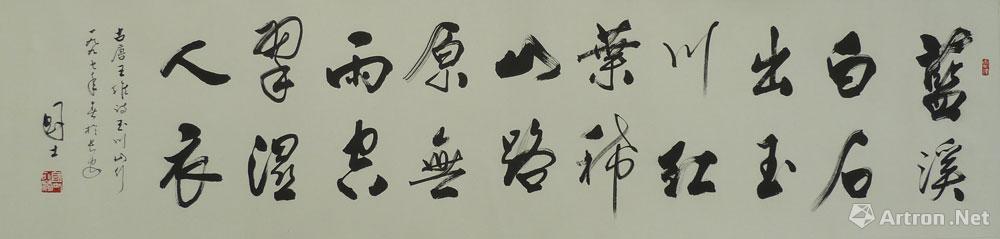 藍溪
白石
出玉
川紅
葉稀
山路
原無
雨空
翠濕
人衣
唐王維詩玉川山行
一九九七年春於長安
Artron.Net